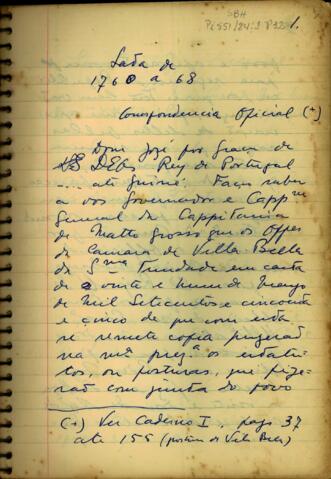 SBH
Pi551/24:1 P32
1.
Lada de
1760 a 68
Correspondencia Oficial (+)
Dom José por graça de
DEOs Rey de Portugal
... até guiné: Faço saber
a vos Governador e Capp^m
General da Cappitania
de Matto grosso que os Offes
da Camara de Villa Bella
da S^ma Trindade em carta
de vinte e hum de março
de mil Setecentos e cincoenta
e cinco de que com esta
se remete copia
na m^a prez.^ça os estatu-
tos, ou posturas, que fize-
rão com junta do povo
(+) Ver Caderno I, pags 37
até 155 (posturas de Vila Bela)